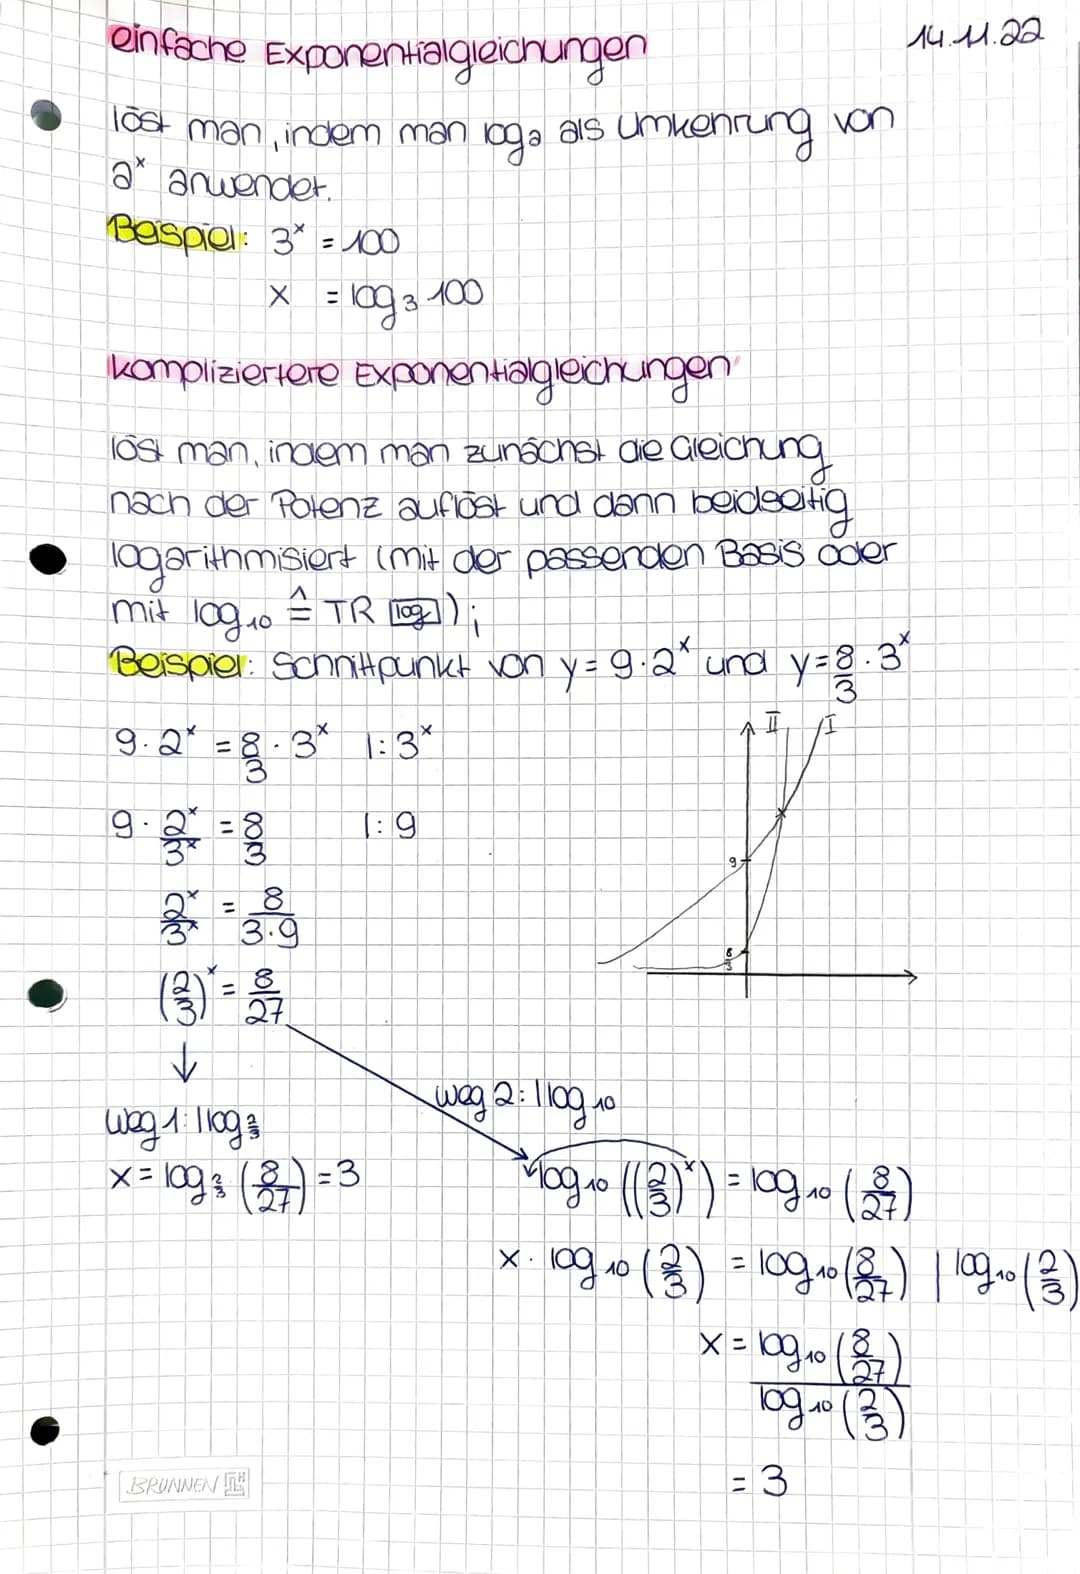 einfache Exponentialgleichungen 14.11.22
löst man, indem man logₐ als Umkehrung von
aˣ anwendet.
Beispiel: 3ˣ = 100
x = log₃ 100
kompliziertere Exponentialgleichungen
löst man, indem man zunächst die Gleichung
nach der Potenz auflöst und dann beidseitig
logarithmisiert (mit der passenden Basis oder
mit log₁₀ ≙ TR [log]);
Beispiel: Schnittpunkt von y = 9·2ˣ und y = 8/3 · 3ˣ
9·2ˣ = 8/3 · 3ˣ |:3ˣ
II I
9 · 2ˣ/3ˣ = 8/3 |:9
9
2ˣ/3ˣ = 8/(3·9)
8/3
(2/3)ˣ = 8/27
↓
Weg 2: | log₁₀
Weg 1: | log_2/3
x = log_2/3 (8/27) = 3
log₁₀ ((2/3)ˣ) = log₁₀ (8/27)
x · log₁₀ (2/3) = log₁₀ (8/27) | log₁₀ (2/3)
x = log₁₀ (8/27) / log₁₀ (2/3)
= 3
BRUNNEN